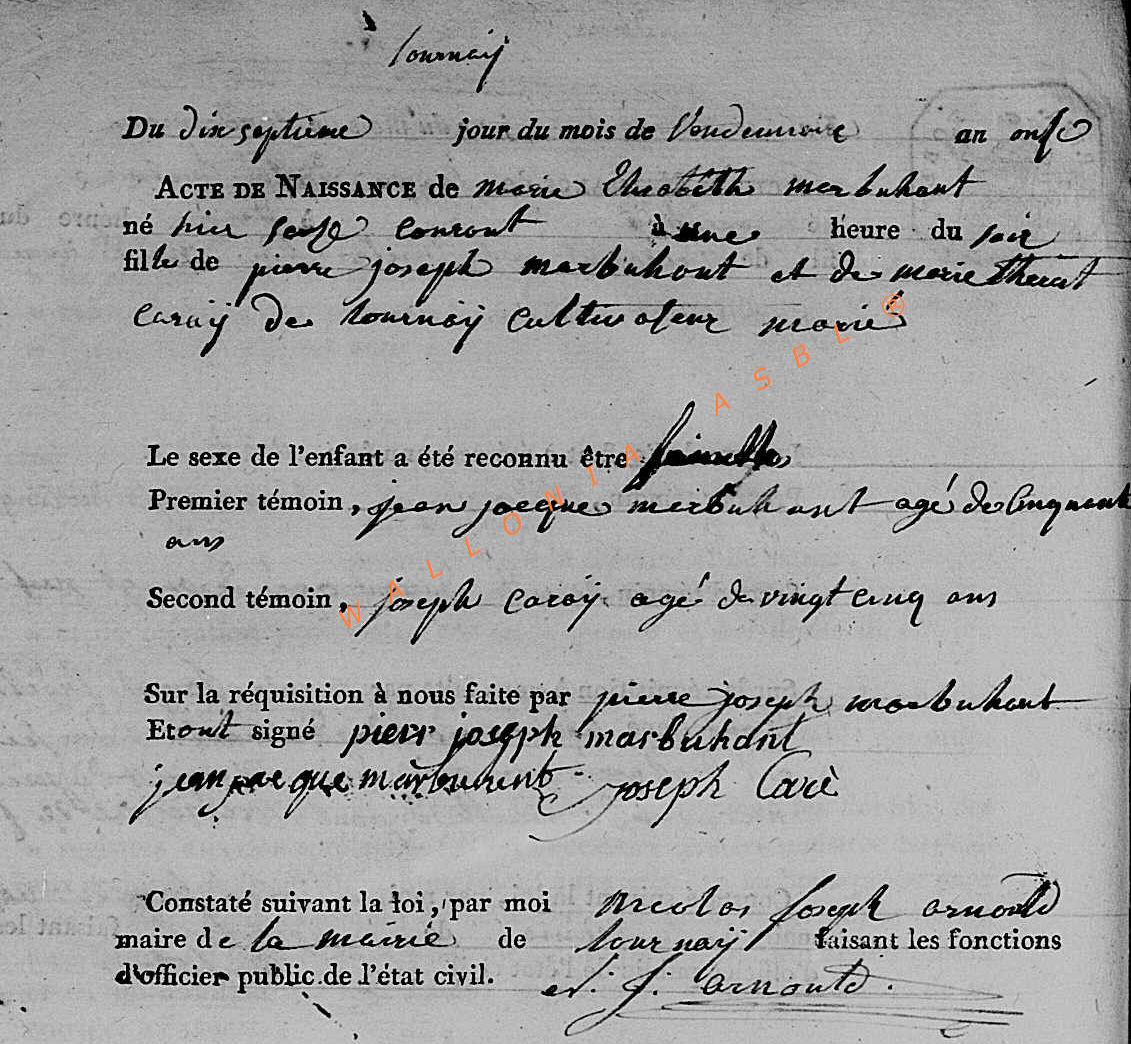 tournaÿ
Du dix septieme jour du mois de Vendemiaire an onse
ACTE DE NAISSANCE de marie Elisabeth marbuhant
né hier seise courant à une heure du soir
fille de pierre joseph marbuhant et de marie Theres
Caraÿ de tournaÿ cultivateur marié
Le sexe de l'enfant a été reconnu être femelle
Premier témoin, jean jacque marbuhant agé de Cinquante
ans
Second témoin, joseph Caraÿ agé de vingt cinq ans
Sur la réquisition à nous faite par pierre joseph marbuhant
Et ont signé pierr joseph marbuhant
jean jacque marbuhent joseph Carè
Constaté suivant la loi, par moi nicolas Joseph arnould
maire de la mairie de tournaÿ faisant les fonctions
d'officier public de l'état civil. n. j. arnould.
WALLONIA ASBL ®